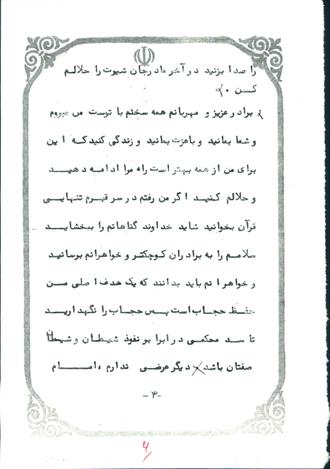 را صدا بزنید در آخر مادرجان شیرت را حلالم
کـن ۰
برادر عزیز و مهربانم همه سخنم با توست من میروم
و شما بمانید و باعزت بمانید و زندگی کنید که این
برای من از همه بهتر است راه مرا ادامه دهید
و حلالم کنید اگر من رفتم در سر قبرم تنهایی
قرآن بخوانید شاید خداوند گناهانم را ببخشاید
سلامم را به برادران کوچکتر و خواهرانم برسانید
و خواهرانم باید بدانند که یک هدف اصلی من
حفظ حجاب است پس حجاب را نگهدارید
تا سد محکمی در برابر نفوذ شیطان و شیطان
صفتان باشد دیگر عرضی ندارم ، امـام
-۳-
۴